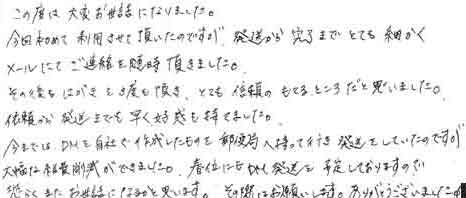 この度は大変お世話になりました。
今回初めて利用させて頂いたのですが、発送から完了までとても細かく
メールにてご連絡を随時頂きました。
その後もはがきも度も頂き、とても信頼のもてるところだと思いました。
依頼から発送までも早く好感も持てました。
今まではDMを自社で作成したものを郵便局へ持って行き発送をしていたのですが
大幅な経費削減ができました。春位にもDM発送を予定しておりますので
恐らくまたお世話になるかと思います。その際はお願いします。ありがとうございました